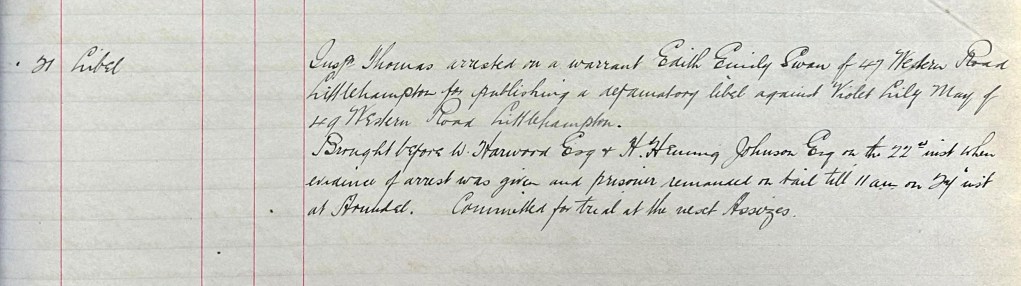 21 Libel Insp. Thomas arrested on a warrant Edith Emily Swan of 47 Western Road
Littlehampton for publishing a defamatory libel against Violet Lily May of
49 Western Road Littlehampton.
Brought before W. Harwood Esq & H. Heming Johnson Esq on the 22nd inst when
evidence of arrest was given and prisoner remanded on bail till 11 am on inst
at Arundel. Committed for trial at the next Assizes.